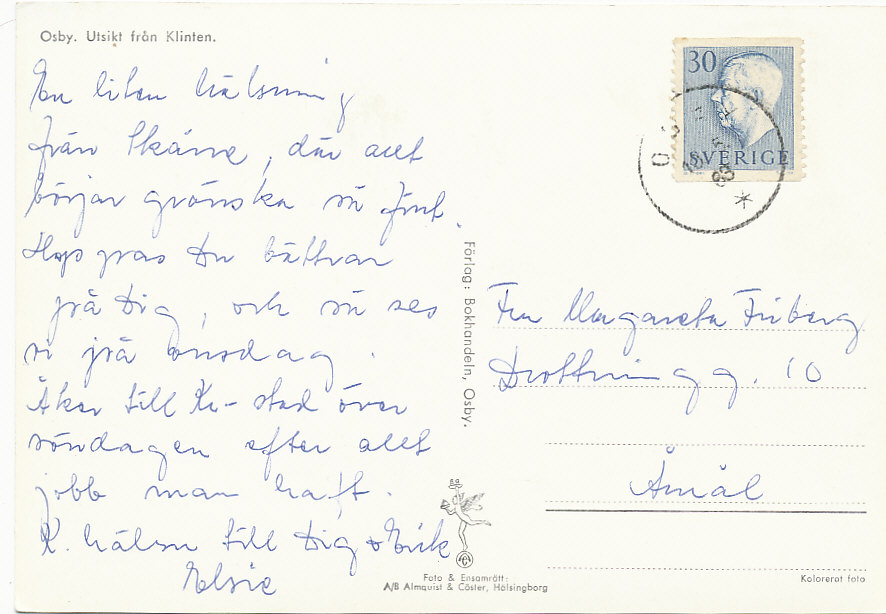 Osby. Utsikt från Klinten.
En liten hälsning
från Skåne, där allt
börjar grönska så fint.
Hoppas Du bättrar
på Dig, och så ses
vi på onsdag.
Åker till Kr-stad över
söndagen efter allt
jobb man haft.
K. hälsn till Dig + Erik
Elsie
Förlag: Bokhandeln, Osby.
30
SVERIGE
OSBY
Fru Margareta Friberg
Drottningg. 10
Åmål
Foto & Ensamrätt:
A/B Almquist & Cöster, Hälsingborg
Kolorerat foto